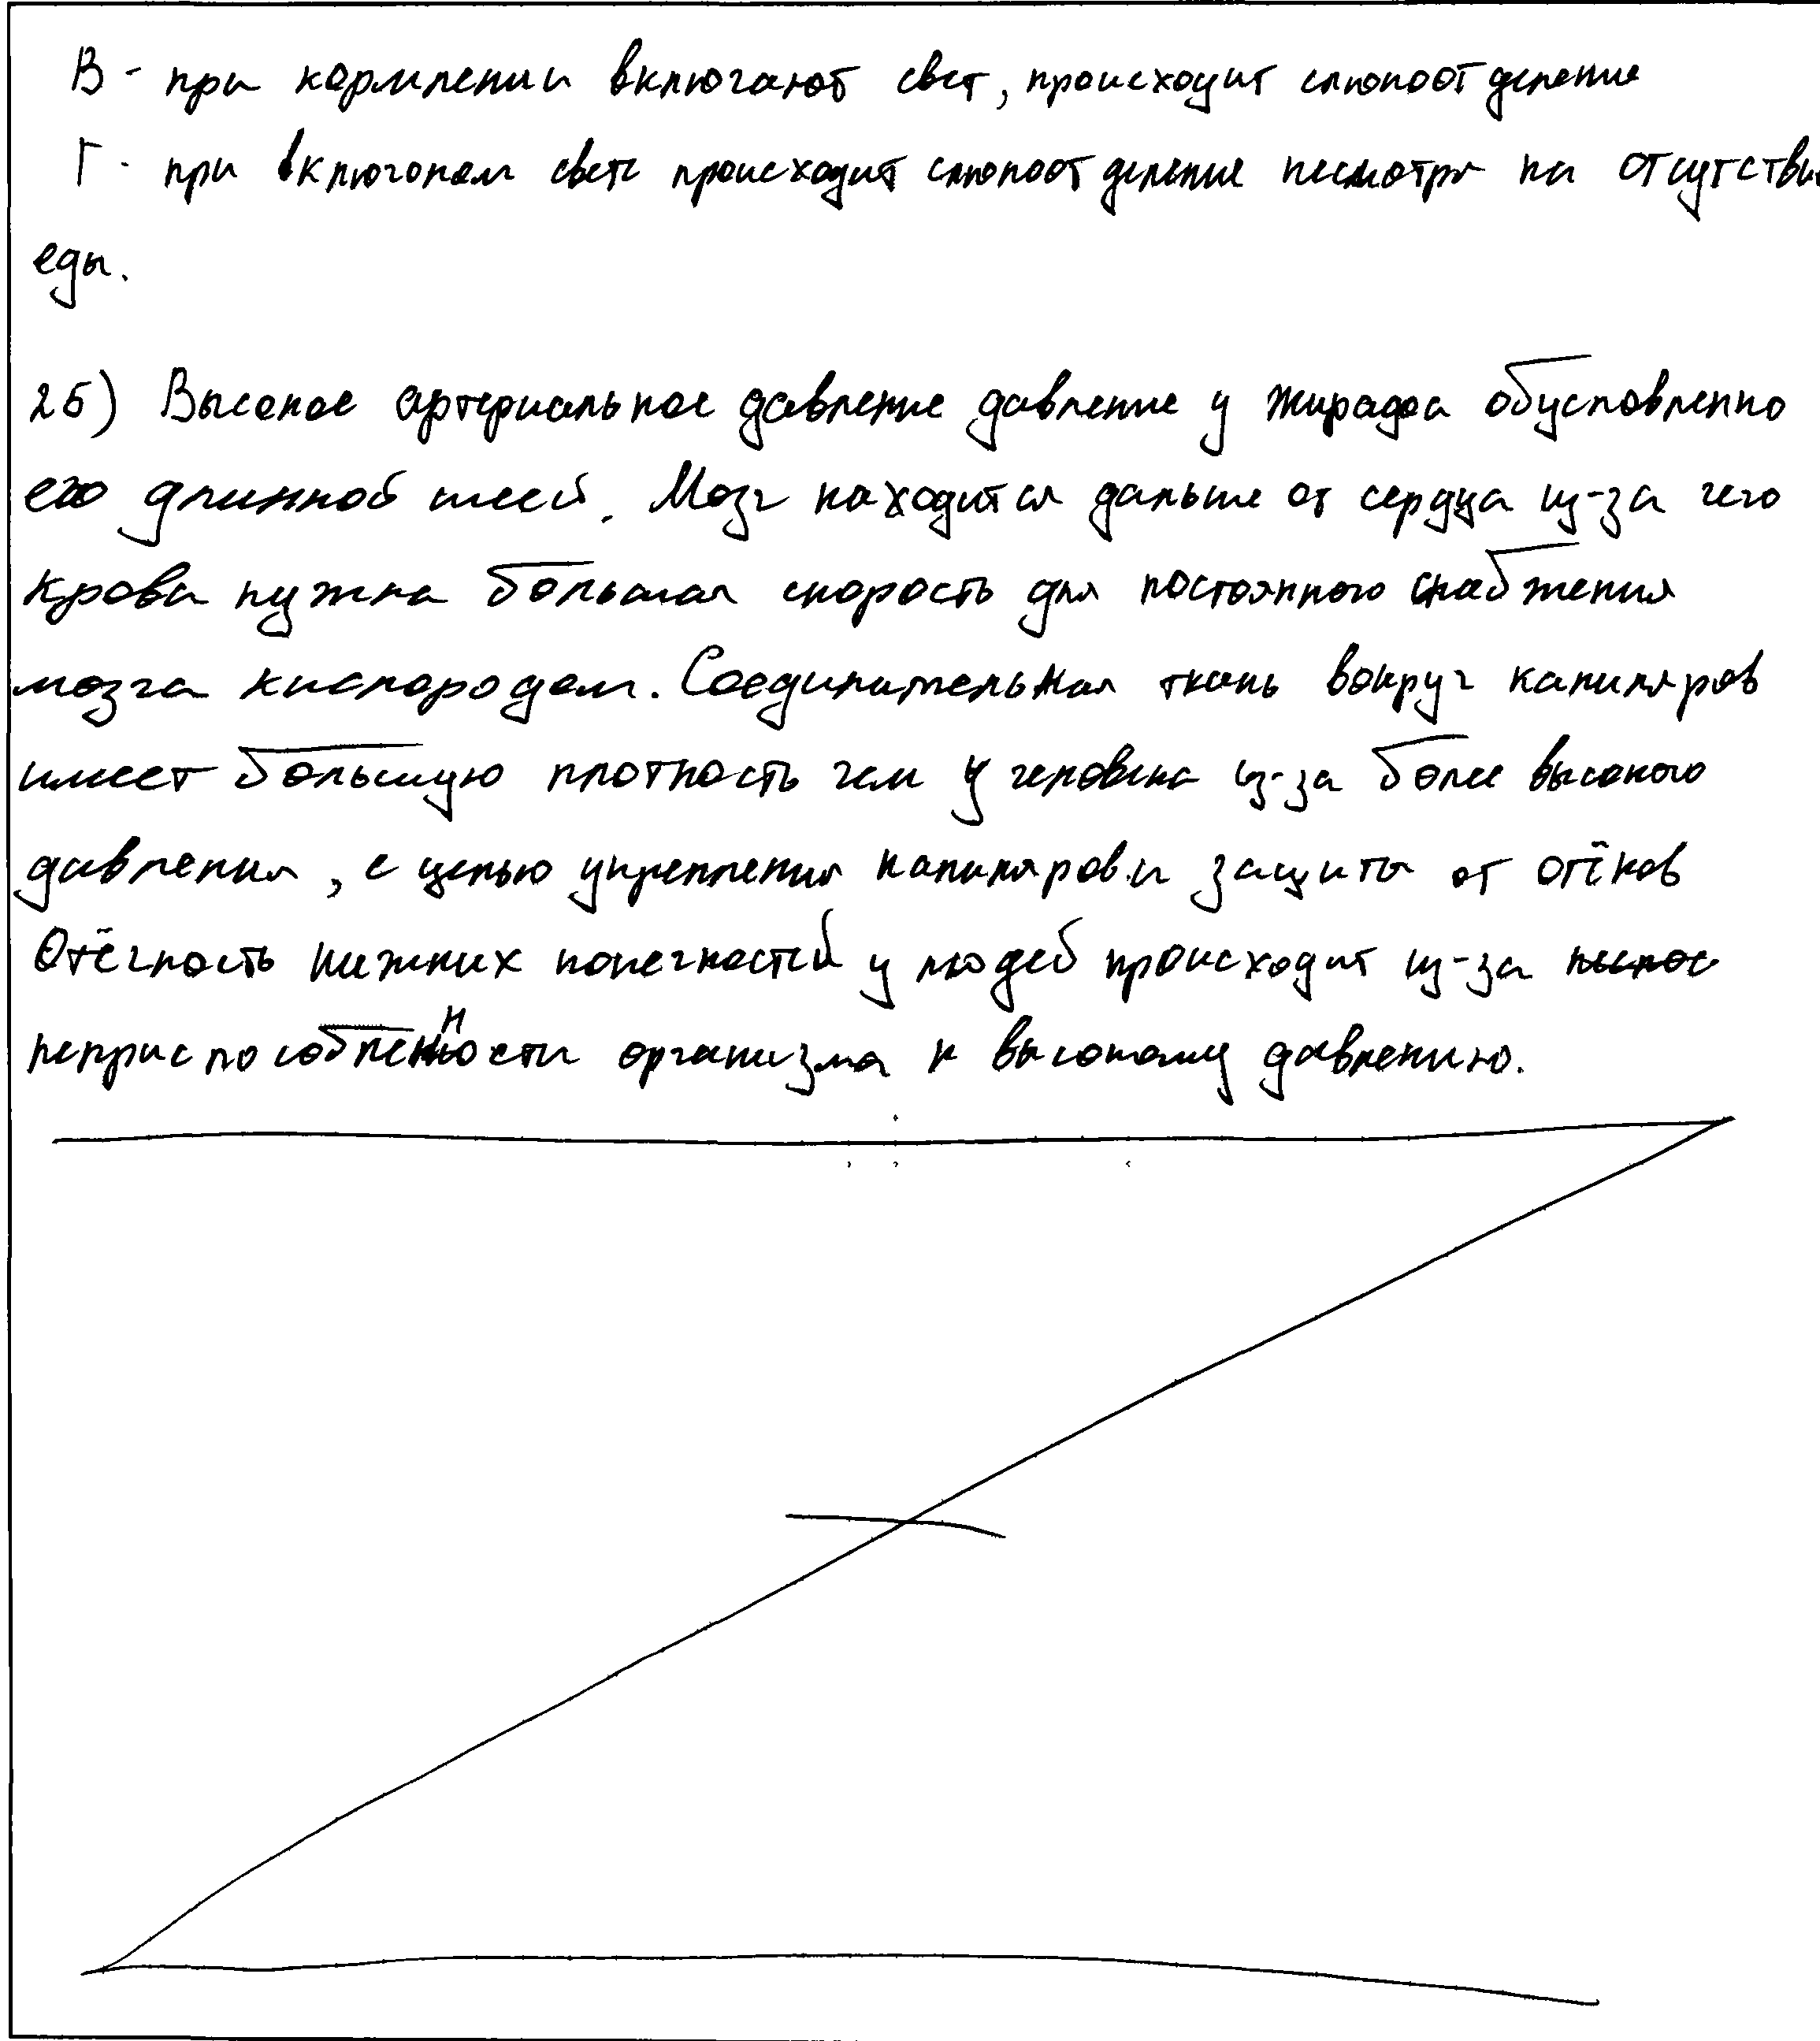 В - при кормлении включают свет, происходит слюноотделение
Г - при включоном свете происходит слюноотделение несмотря на отсутствие
еды.
25) Высокое артериальное давление давление у жирафа обусловленно
его длинной шеей. Мозг находится дальше от сердца из-за чего
крови нужна большая скорость для постоянного снабжения
мозга кислородом. Соединительная ткань вокруг капиляров
имеет большую плотность чем у человека из-за более высокого
давления, с целью укрепления капиляров и защиты от отёков
Отёчность нижних конечностей у людей происходит из-за
неприспособленности организма к высокому давлению.